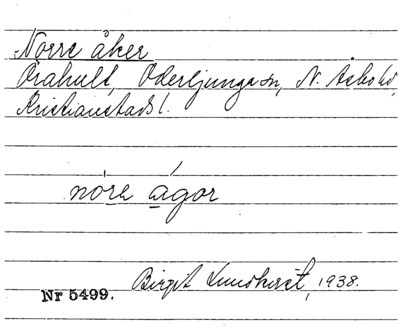 Norre åker
Örahult, Oderljunga sn, N. Åsbo hd,
Kristianstads l.
nórə ágor
Birgit Lundqvist, 1938.
Nr 5499.